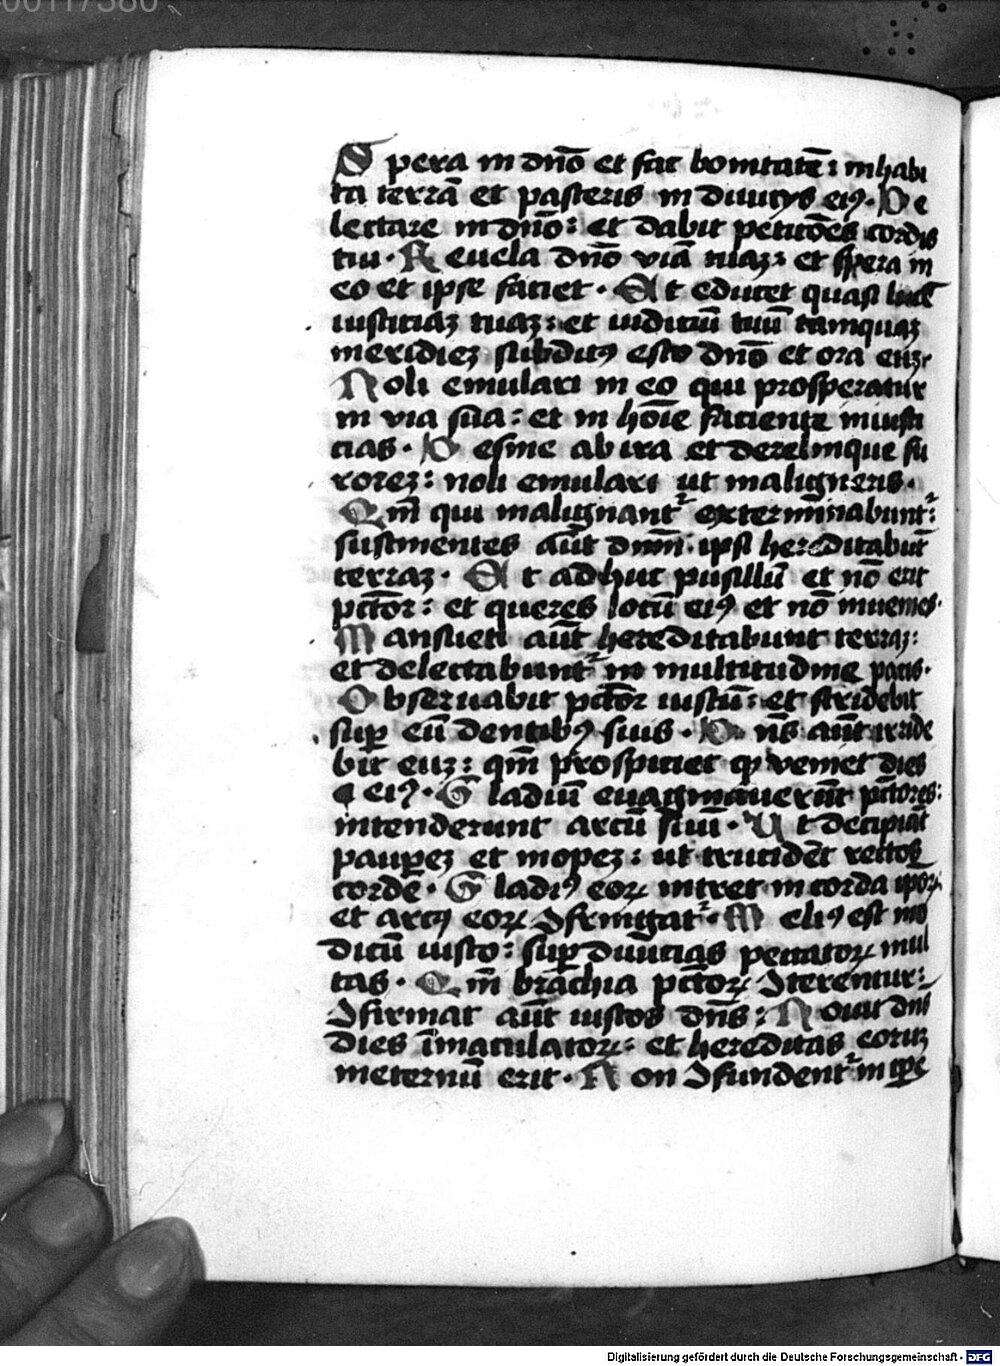 00117380
S pera in dnō et fac bonitatē: inhabi
ta terrā et pasceris in diuicijs eiꝰ. De
lectare in dnō: et dabit peticōes cordis
tui. Reuela dnō viā tuaꝫ: et spera in
eo et ipse faciet. Et educet quasi lucē
iusticiaꝫ tuaꝫ: et iudiciū tuū tamquaꝫ
meridieꝫ subditꝰ esto dnō et ora euꝫ
Noli emulari in eo qui prosperatur
in via sua: et in hoīe faciente iniusti
cias. Desine ab ira et derelinque fu
roreꝫ: noli emulari ut maligneris.
Qm̄ qui malignant᷑ exterminabunt᷑:
sustinentes aūt dnm̄ ipsi hereditabūt
terraꝫ. Et adhuc pusillū et nō erit
pctōr: et queres locū eiꝰ et nō inuenies.
Mansueti aūt hereditabunt terraꝫ:
et delectabunt᷑ in multitudine pacis.
Obseruabit pctōr iustū: et stridebit
suꝑ eū dentibꝰ suis. Dn̄s aūt irride
bit euꝫ: qm̄ prospiciet qꝫ veniet dies
eiꝰ. Gladiū euaginauerūt pctōres:
intenderunt arcū suū. Ut decipiāt
paupeꝫ et inopeꝫ: ut trucidēt rectos
corde. Gladiꝰ eoꝝ intret in corda ipoꝝ
et arcꝰ eoꝝ ꝯfringat᷑. Meliꝰ est mo
dicū iusto: suꝑ diuicias peccatoꝝ mul
tas. Qm̄ brachia pctōꝝ ꝯterentur:
ꝯfirmat aūt iustos dn̄s: Nouit dn̄s
dies īmaculatoꝝ: et hereditas eoruꝫ
in eternū erit. Non ꝯfundent᷑ in tp̄e
Digitalisierung gefördert durch die Deutsche Forschungsgemeinschaft - DFG